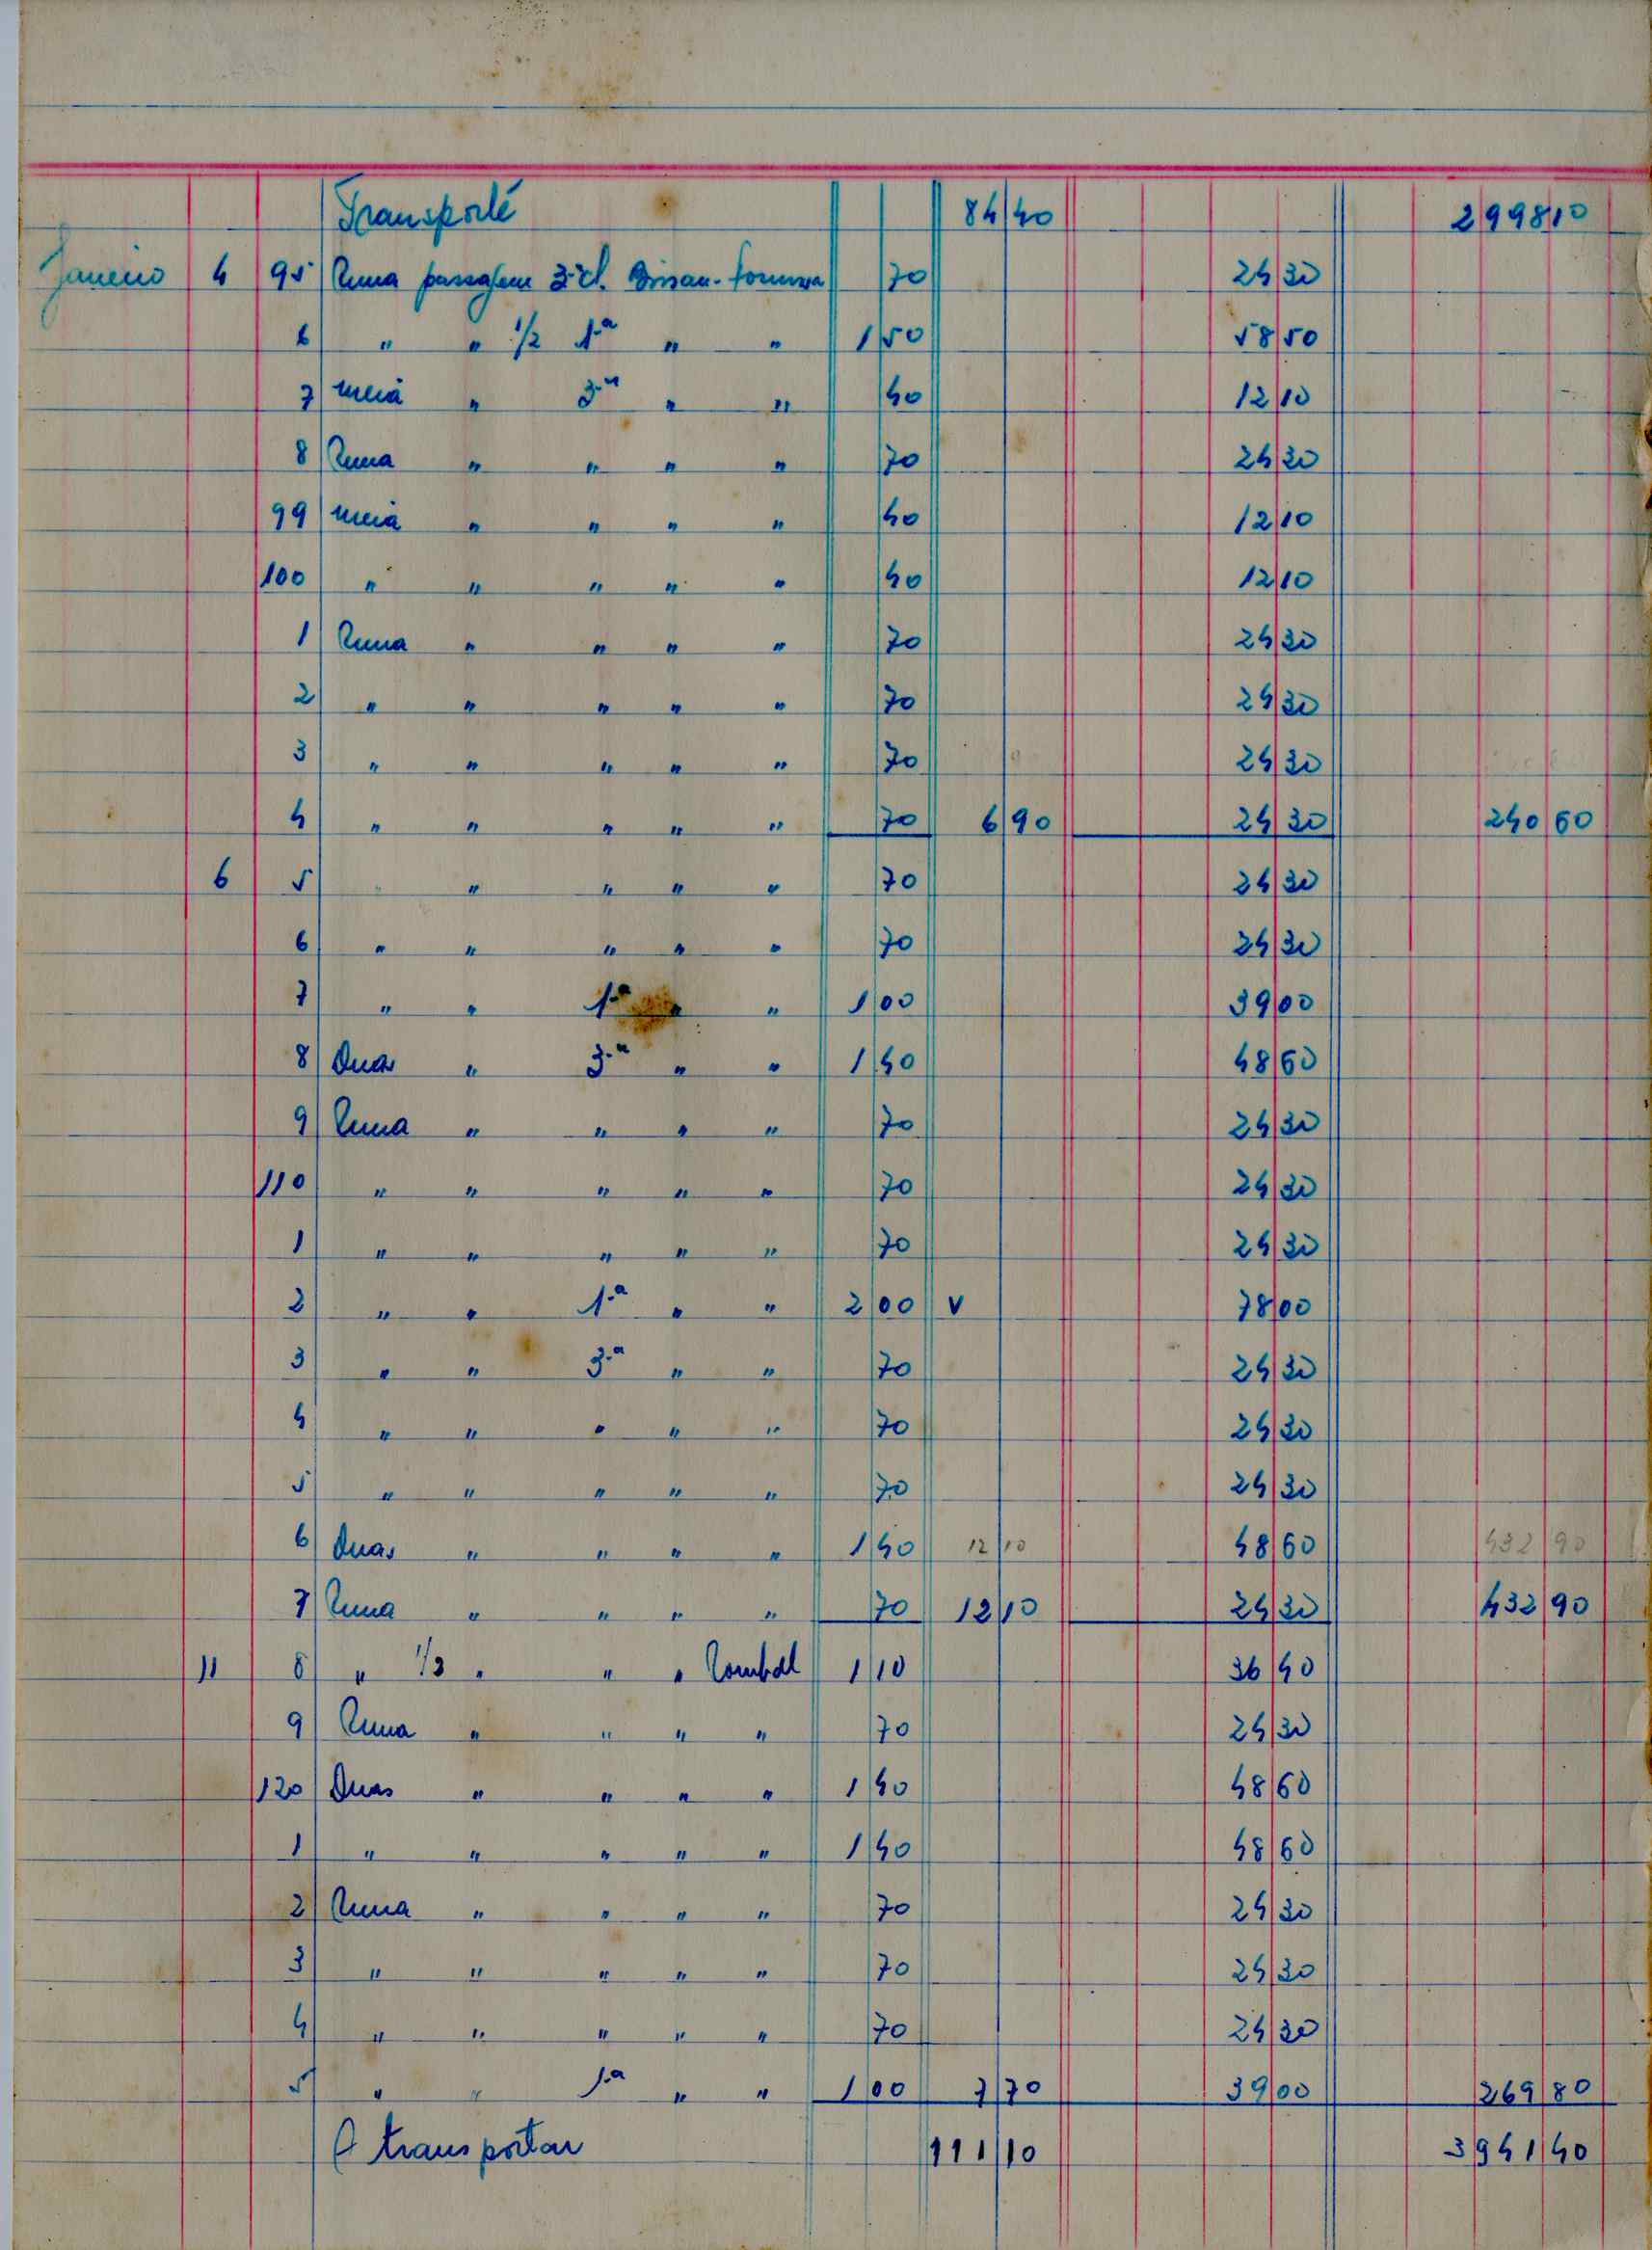 Transporte 84 40 2998 10
Janeiro 4 95 Uma passagem 3.ª cl. Bissau- 70 24 30
6 " " 1/2 1.ª " " 1 50 58 50
7 meia " 3.ª " " 40 12 10
8 Uma " " " " 70 24 30
99 meia " " " " 40 12 10
100 " " " " " 40 12 10
1 Uma " " " " 70 24 30
2 " " " " " 70 24 30
3 " " " " " 70 24 30
4 " " " " " 70 6 90 24 30 240 60
6 5 " " " " " 70 24 30
6 " " " " " 70 24 30
7 " " 1.ª " " 1 00 39 00
8 Duas " 3.ª " " 1 40 48 60
9 Uma " " " " 70 24 30
110 " " " " " 70 24 30
1 " " " " " 70 24 30
2 " " 1.ª " " 2 00 v 78 00
3 " " 3.ª " " 70 24 30
4 " " " " " 70 24 30
5 " " " " " 70 24 30
6 Duas " " " " 1 40 12 10 48 60 432 90
7 Uma " " " " 70 12 10 24 30 432 90
11 8 " 1/2 " " " 1 10 36 40
9 Uma " " " " 70 24 30
120 Duas " " " " 1 40 48 60
1 " " " " " 1 40 48 60
2 Uma " " " " 70 24 30
3 " " " " " 70 24 30
4 " " " " " 70 24 30
5 " " 1.ª " " 1 00 7 70 39 00 269 80
A transportar 111 10 3941 40